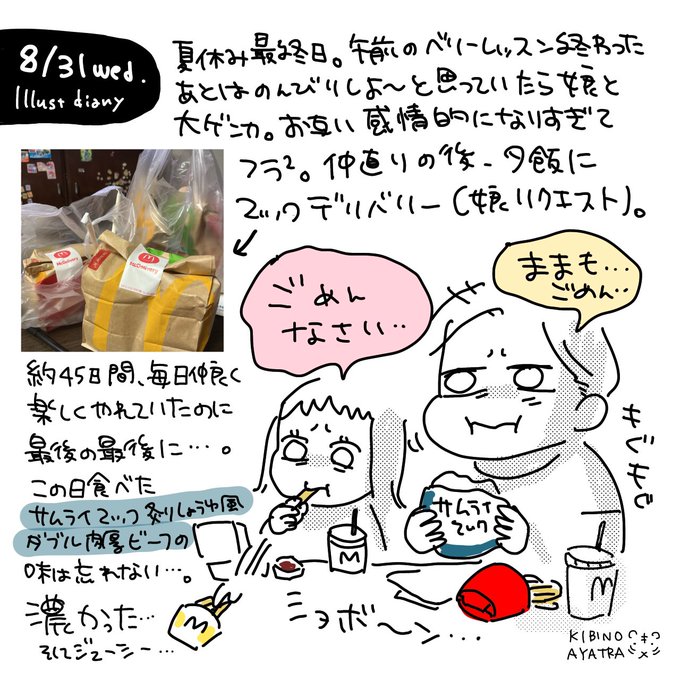 8/31 wed.
Illust diary
夏休み最終日。午前のベリーレッスン終わった
あとはのんびりしよ〜と思っていたら娘と
大ゲンカ。お互い感情的になりすぎて
フラ²。仲直りの後、夕飯に
マックデリバリー(娘リクエスト)。
McDelivery
McDelivery
ごめん
なさい…
ままも…
ごめん…
約45日間、毎日仲良く
楽しくやれていたのに
最後の最後に…。
この日食べた
サムライマック炙りしょうゆ風
ダブル肉厚ビーフの
味は忘れない…。
濃かった…
そしてジューシー…
サムライ
マック
もぐもぐ
ションボ〜ン…
KIBINO
AYATRA